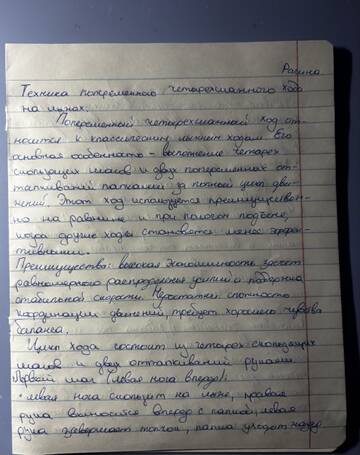 Разина
Техника попеременного четырехшажного хода
на лыжах.
Попеременный четырехшажный ход от-
носится к классическим лыжным ходам. Его
основная особенность - выполнение четырех
скользящих шагов и двух попеременных от-
талкиваний палками за полный цикл дви-
жений. Этот ход используется преимуществен-
но на равнине и при пологом подъеме,
когда другие ходы становятся менее эффек-
тивными.
Преимущества: высокая экономичность за счет
равномерного распределения усилий и поддержка
стабильной скорости. Недостатки сложность
координации движений, требует хорошего чувства
баланса.
Цикл хода состоит из четырех скользящих
шагов и двух отталкиваний руками.
Первый шаг (левая нога вперед):
• левая нога скользит на лыже, правая
рука выносится вперед с палкой, левая
рука завершает толчок, палка уходит назад.